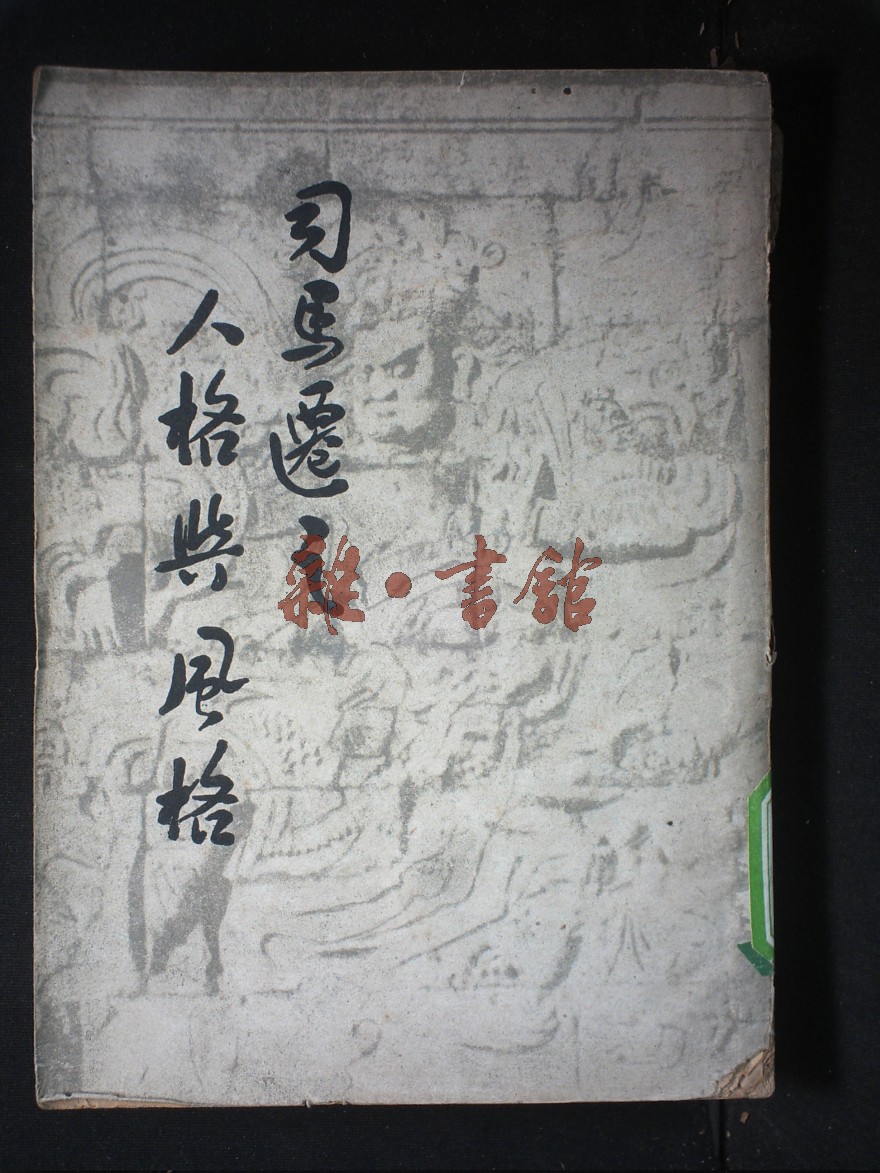 司馬遷之
人格與風格
雜·書館